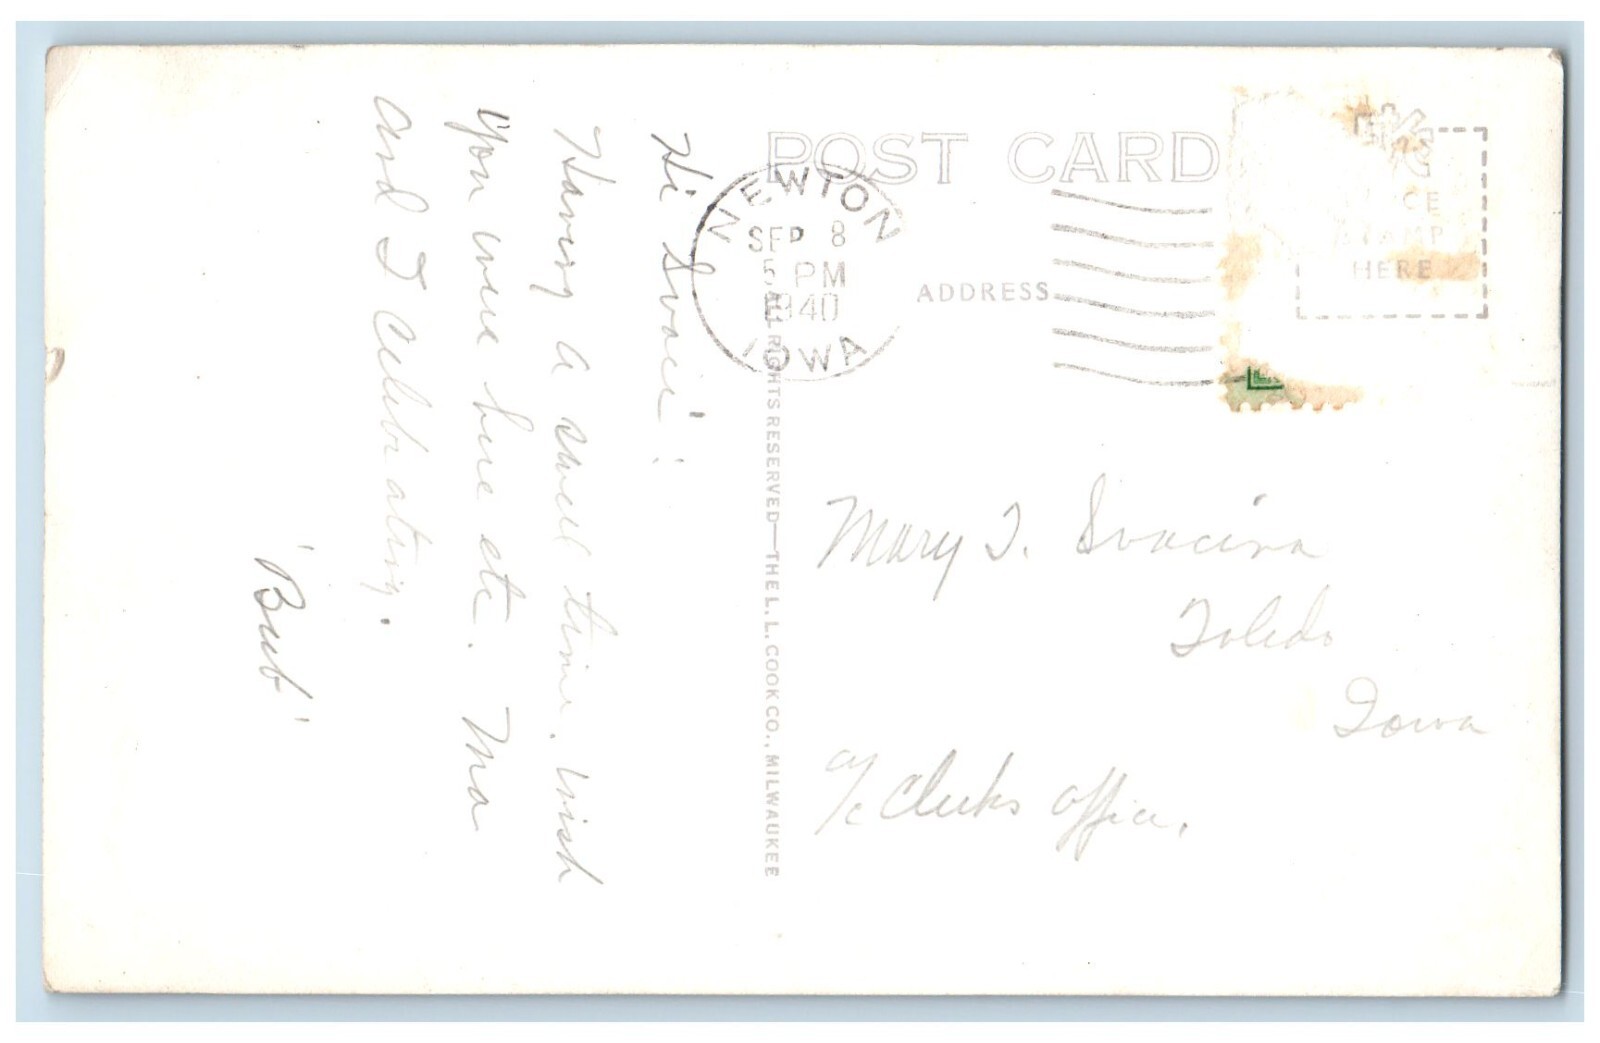 POST CARD
NEWTON
SEP 8
5 PM
1940
IOWA
ADDRESS
PLACE
STAMP
HERE
ALL RIGHTS RESERVED—THE L. L. COOK CO., MILWAUKEE
Hi Svaci':
Having a swell time. Wish
you were here etc. Ma
and I celebrating.
'Bub'
Mary I. Svacina
Toledo
Iowa
c/o Clerks Office.